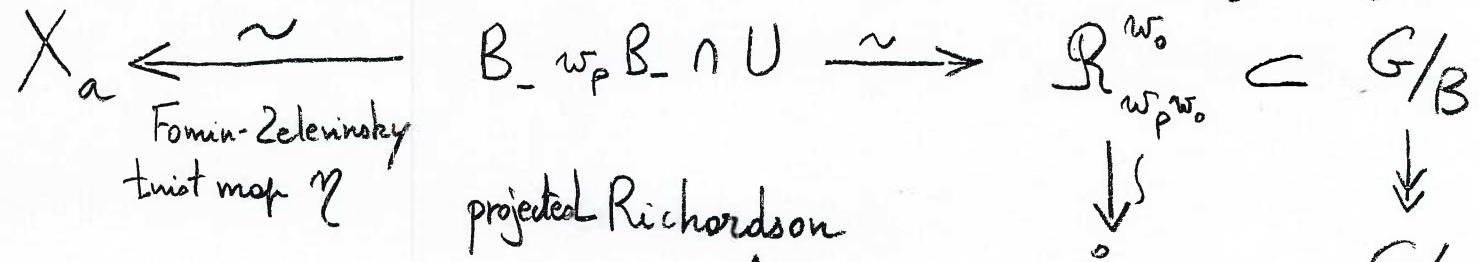 X_a ←∼ B_- w_p B_- ∩ U ∼→ R^{w_0}_{w_p w_0} ⊂ G/B
Fomin-Zelevinsky
twist map η
projected Richardson
G/